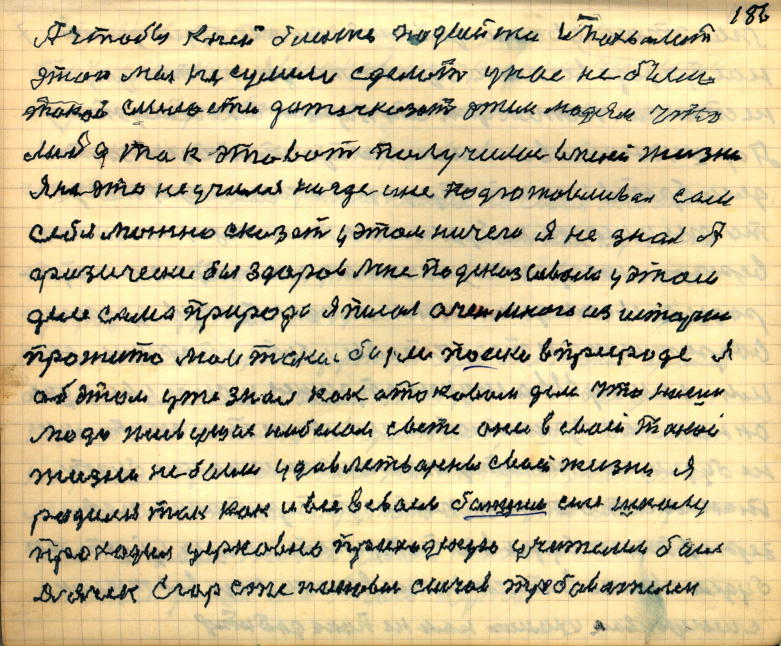 186
А чтобы к ней ближе подойти и похвалит
этого мы не сумели сделат у нас не было
такой смелости даточказат этим людям что
я так это вот получилос в моей жизни
Я на это не учился нигде и не подготовливал сам
себя можно сказат у этом ничего я не знал А
физически был здоров мне подсказывала у этом
деле сама природа я писал очен много из истории
прожито мои таки были поиски в природе Я
об этом уже знал как о таковом деле что наши
люди живущие на белом свете они в своей такой
жизни не были удовлетварены своей жизни Я
родился так как и все в своем бат школу
проходил церковно приходную учителем был
дячек Егор Сичов требователен